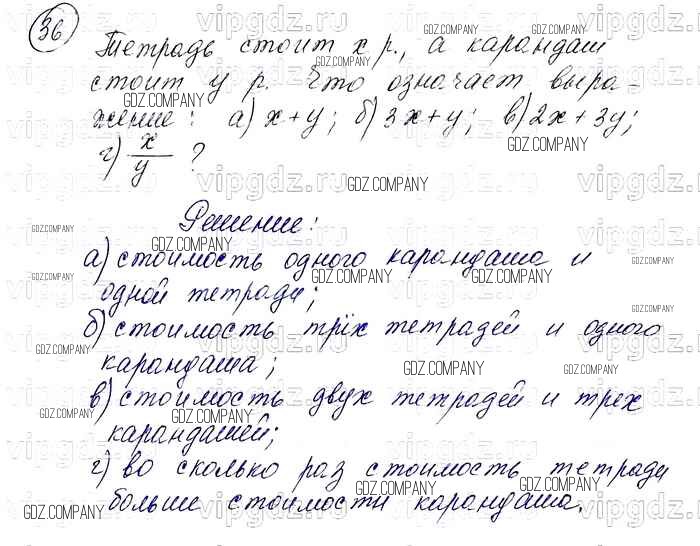 36
Тетрадь стоит x р., а карандаш
стоит y р. Что означает выра-
жение: а) x + y; б) 3x + y; в) 2x + 3y;
г) x/y ?
Решение:
а) стоимость одного карандаша и
одной тетради;
б) стоимость трёх тетрадей и одного
карандаша;
в) стоимость двух тетрадей и трех
карандашей;
г) во сколько раз стоимость тетради
больше стоимости карандаша.